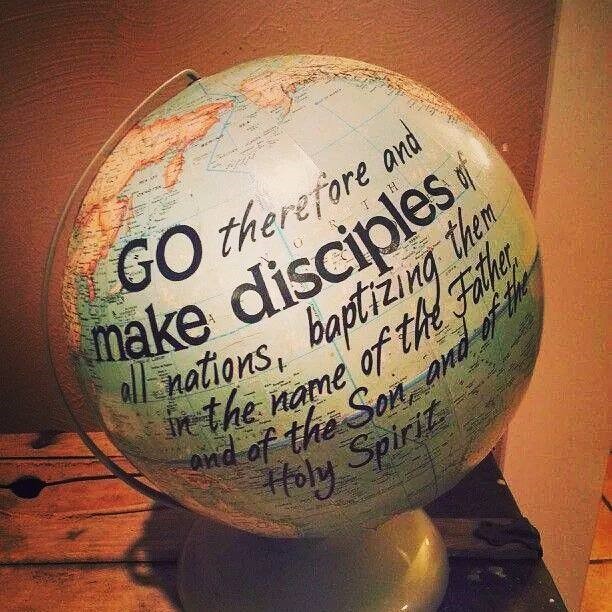 GO therefore and
make disciples of
all nations, baptizing them
in the name of the Father,
and of the Son, and of the
Holy Spirit